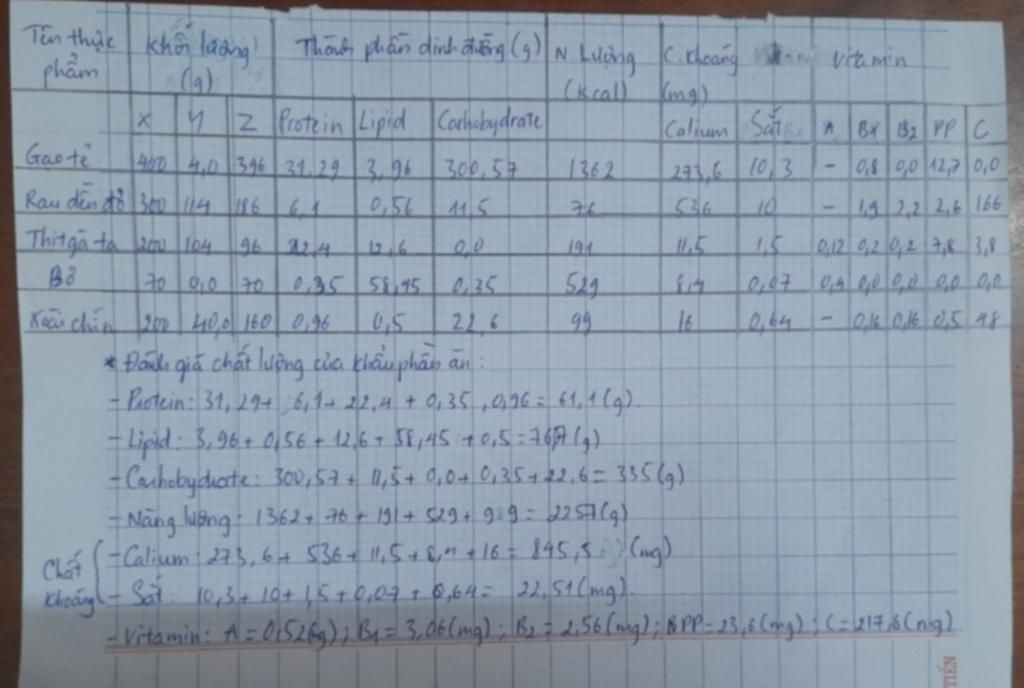 Tên thực phẩm Khối lượng (g) Thành phần dinh dưỡng (g) N. Lượng (Kcal) C. Khoáng (mg) vitamin
X Y Z Protein Lipid Carhobydrate Calium Sắt A B1 B2 PP C
Gạo tẻ 400 4,0 396 31,29 3,96 300,57 1362 273,6 10,3 - 0,8 0,0 12,7 0,0
Rau dền đỏ 300 114 186 6,1 0,56 11,5 76 536 10 - 1,9 2,2 2,6 166
Thịt gà ta 200 104 96 22,4 12,6 0,0 191 11,5 1,5 0,12 0,2 0,2 7,8 3,8
Bơ 70 0,0 70 0,35 58,45 0,35 529 8,4 0,07 0,4 0,0 0,0 0,0 0,0
Xoài chín 200 40,0 160 0,96 0,5 22,6 99 16 0,64 - 0,16 0,16 0,5 48
* Đánh giá chất lượng của khẩu phần ăn:
- Protein: 31,29+ 6,1+22,4 + 0,35 , 0,96= 61,1(g)
- Lipid: 3,96+ 0,56+12,6+58,45 +0,5=76,7(g)
- Carhobydrate: 300,57+ 11,5+0,0+0,35+22,6= 335(g)
- Năng lượng: 1362+76+191+529+99=2257(g)
Chất khoáng
- Calium: 273,6+ 536+11,5+8,4+16= 845,5 (mg)
- Sắt: 10,3+10+1,5+0,07+0,64= 22,51(mg)
- Vitamin: A=0,52(g); B1= 3,06(mg); B2=2,56(mg); PP=23,6(mg); C=217,8(mg)